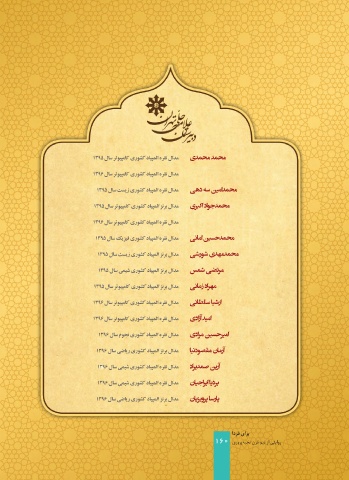 دبیرستان علامه حلی تهران
محمد محمدی مدال نقره المپیاد کشوری کامپیوتر سال ۱۳۹۵
مدال نقره المپیاد کشوری کامپیوتر سال ۱۳۹۶
محمدامین سه دهی مدال نقره المپیاد کشوری زیست سال ۱۳۹۵
محمدجواد اکبری مدال برنز المپیاد کشوری کامپیوتر سال ۱۳۹۵
مدال نقره المپیاد کشوری کامپیوتر سال ۱۳۹۶
محمدحسین امانی مدال نقره المپیاد کشوری فیزیک سال ۱۳۹۵
محمدمهدی شورشی مدال برنز المپیاد کشوری زیست سال ۱۳۹۵
مرتضی شمس مدال نقره المپیاد کشوری شیمی سال ۱۳۹۵
مهراد زمانی مدال برنز المپیاد کشوری کامپیوتر سال ۱۳۹۵
ارشیا سلطانی مدال نقره المپیاد کشوری کامپیوتر سال ۱۳۹۶
امید آزادی مدال نقره المپیاد کشوری کامپیوتر سال ۱۳۹۶
امیرحسین مرادی مدال نقره المپیاد کشوری نجوم سال ۱۳۹۶
آرمان مقصودنیا مدال برنز المپیاد کشوری ریاضی سال ۱۳۹۶
آرین صمدیراد مدال نقره المپیاد کشوری شیمی سال ۱۳۹۶
بردیا فراحیان مدال نقره المپیاد کشوری شیمی سال ۱۳۹۶
پارسا پرویزیان مدال برنز المپیاد کشوری ریاضی سال ۱۳۹۶
برای فردا
۱۶۰